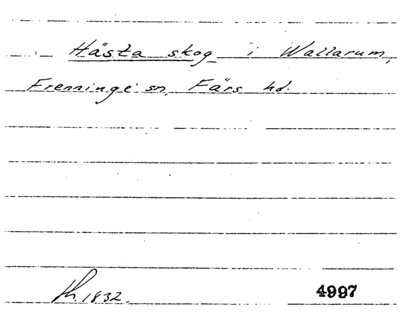 Hästa skog i Wallarum,
Frenninge sn. Färs hd.
1832. 4997